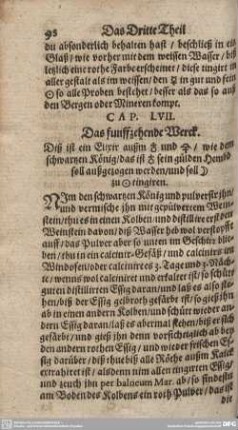 98 Das Dritte Theil
du absonderlich behalten hast / beschließ in ein
Glaß / wie vorher mit dem weissen Wasser / biß
letzlich eine rothe Farbe erscheinet / diese tingirt in
aller gestalt als im weissen / den ☿ in gut und fein
☉ so alle Proben bestehet / besser als das so auß
den Bergen oder Mineren kompt.
CAP. LVII.
Das funffzehende Werck.
Diß ist ein Elixir außm ☿ und / wie dem
schwartzen König / das ist sein gülden Hembd
soll außgezogen werden / und soll ☽
zu ☉ tingiren.
NIm den schwartzen König und pulverisir jhn /
und vermische jhn mit gepülvertem Wein-
stein / thu es in einen Kolben / und destillire erst den
Weinstein davon / diß Wasser heb wol verstopfft
auff / das Pulver aber so unten im Geschirr blie-
ben / thu in ein calcinir-Gefäß / und calcinirs im
Windofen / oder calcinir es 3. Tage und 3. Näch-
te / wenns wol calciniret und erkaltet ist / so schütt
guten distillirten Essig daran / und laß es also ste-
hen / biß der Essig gelbroth gefärbt ist / so gieß jhn
ab in einen andern Kolben / und schütt wieder an-
dern Essig daran / laß es abermal stehen / biß er sich
gefärbe / und gieß jhn denn vorsichtiglich ab bey
den andern rothen Essig / und wieder frischen Es-
sig darüber / diß thue biß alle Röthe außm Kalck
extrahiret ist / alsdenn nim allen tingirten Essig
und zeuch jhn per balneum Mar. ab / so findestu
am Boden des Kolbens ein roth Pulver / das ist
die